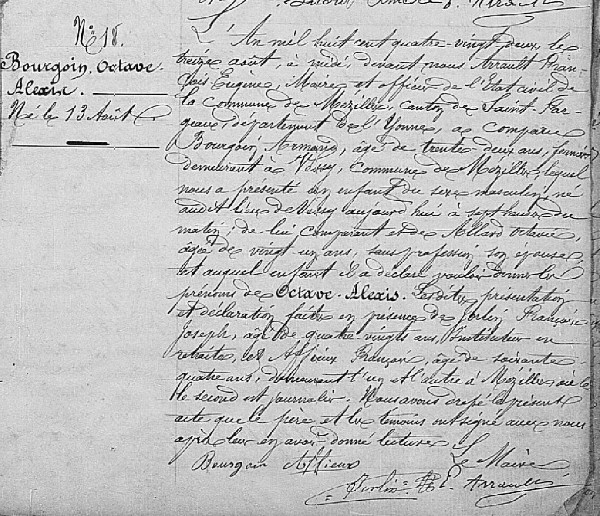 N° 18.
Bourgoin, Octave
Alexis.
Né le 13 Août
L'An mil huit cent quatre-vingt deux le
treize août, à midi, devant nous Arrault Fran-
çois Eugène, Maire et officier de l'Etat civil de
la Commune de Mézilles, canton de Saint-Far-
geau, département de l'Yonne, a comparu
Bourgoin Armand, âgé de trente deux ans,
demeurant à Vessy, commune de Mézilles, lequel
nous a présenté un enfant du sexe masculin, né
audit lieu de Vessy aujourd'hui à sept heures du
matin, de lui comparant et de Allard Octavie,
âgée de vingt un ans, sans profession, son épouse
et auquel enfant il a déclaré vouloir donner les
prénoms de Octave-Alexis. Lesdites présentation
et déclaration faites en présence de François
Joseph, âgé de quatre-vingts ans, Instituteur en
retraite, et Affieux François, âgé de soixante
quatre ans, demeurant l'un et l'autre à Mézilles où
le second est journalier. Nous avons dressé le présent
acte que le père et les témoins ont signé avec nous
après leur en avoir donné lecture.
Bourgoin Affieux Le Maire
E. Arrault